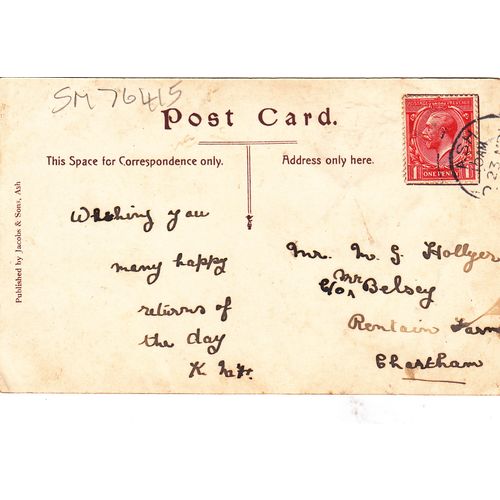 SM 76415
Post Card.
This Space for Correspondence only.
Address only here.
POSTAGE REVENUE
1 ONE PENNY 1
ASH
AM
23 NO
Published by Jacobs & Sons, Ash
Wishing you
many happy
returns of
the day
K
Mr. M. G. Hollyer
c/o Mr Belsey
Rentain Farm
Chartham